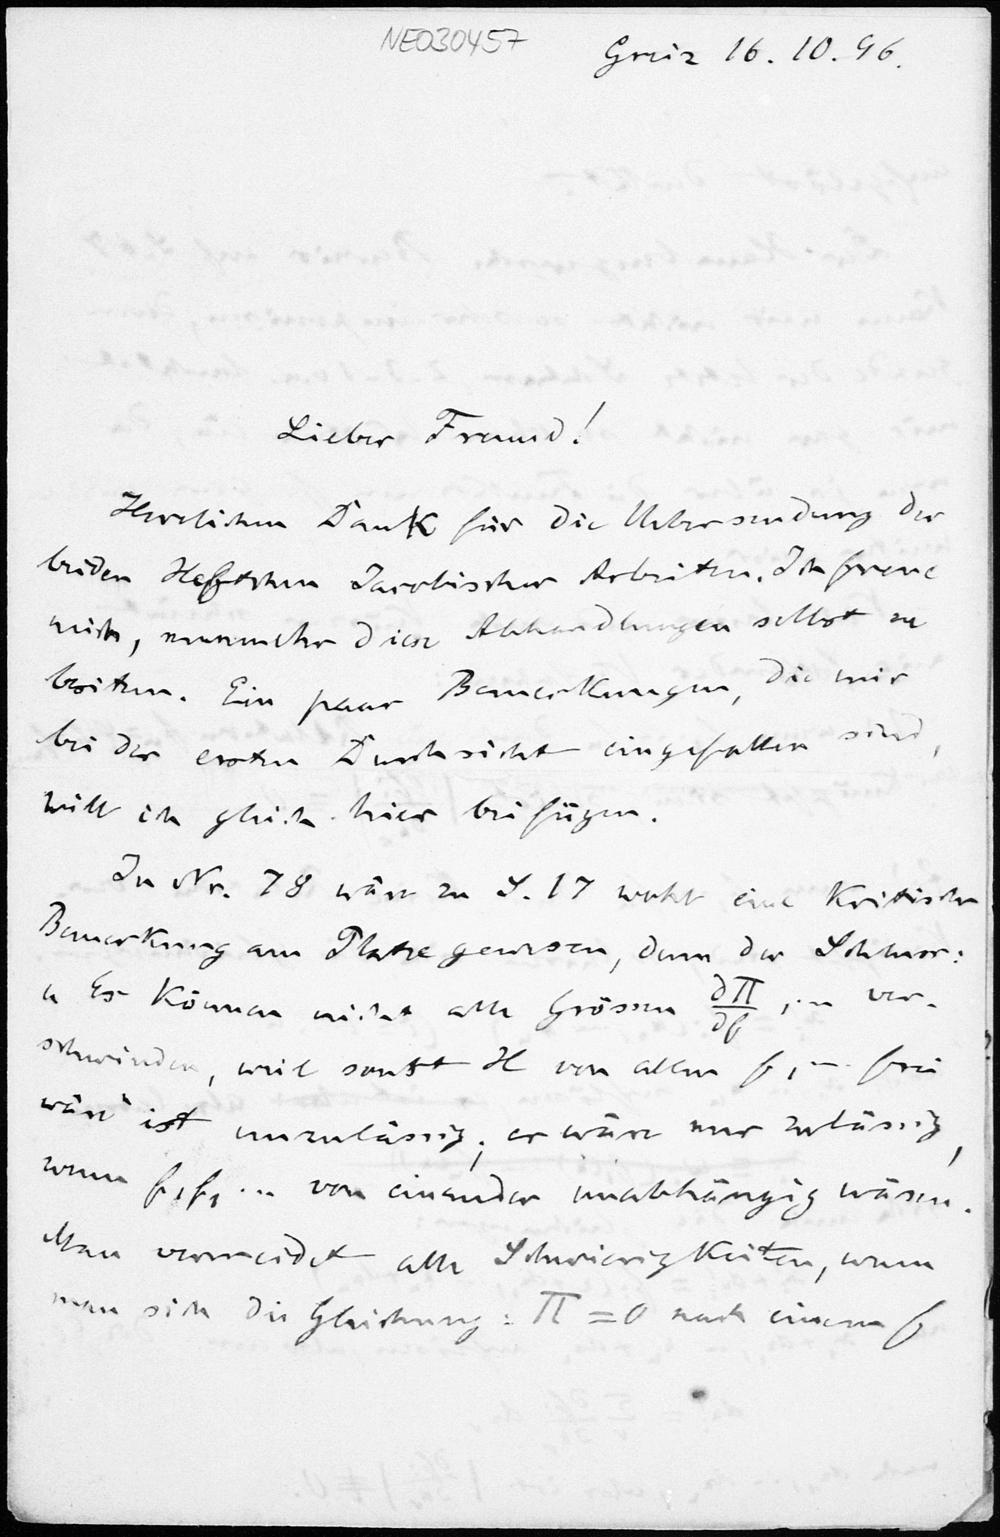 NE030457
Greiz 16. 10. 96.
Lieber Freund!
Herzlichen Dank für die Uebersendung der
beiden Heftchen Jacobischer Arbeiten. Ich freue
mich, nunmehr diese Abhandlungen selbst zu
besitzen. Ein paar Bemerkungen, die mir
bei der ersten Durchsicht eingefallen sind,
will ich gleich hier beifügen.
In Nr. 78 wäre zu S. 17 wohl eine kritische
Bemerkung am Platze gewesen, denn der Schluss:
„Es können nicht alle Grössen ∂Π/∂f, ... ver-
schwinden, weil sonst H von allen f, ... frei
wäre" ist unzulässig; er wäre nur zulässig,
wenn f, f₁ ... von einander unabhängig wären.
Man vermeidet alle Schwierigkeiten, wenn
man sich die Gleichung: Π = 0 nach einem f